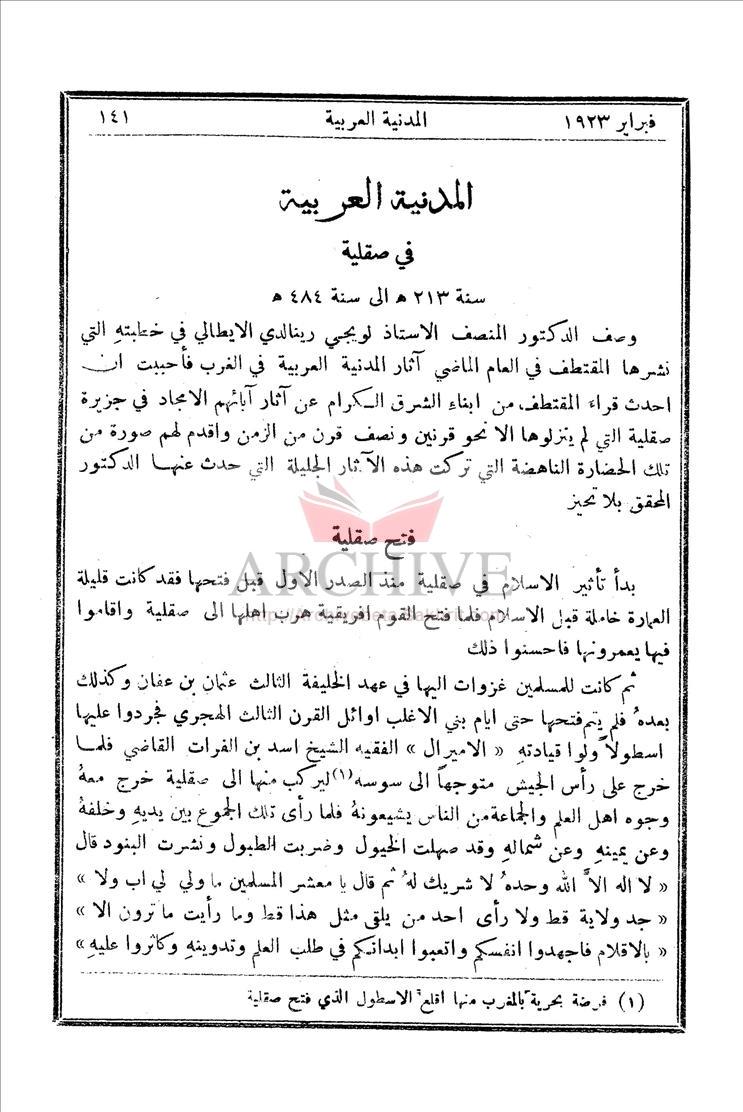 فبراير ١٩٢٣ المدنية العربية ١٤١
المدنية العربية
في صقلية
سنة ٢١٣ ه الى سنة ٤٨٤ ه
وصف الدكتور المنصف الاستاذ لويجي رينالدي الايطالي في خطبتهِ التي
نشرها المقتطف في العام الماضي آثار المدنية العربية في الغرب فأحببت ان
احدث قراء المقتطف من ابناء الشرق الكرام عن آثار آبائهم الامجاد في جزيرة
صقلية التي لم ينزلوها الا نحو قرنين ونصف قرن من الزمن واقدم لهم صورة من
تلك الحضارة الناهضة التي تركت هذه الآثار الجليلة التي حدث عنها الدكتور
المحقق بلا تحيز
فتح صقلية
ARCHIVE
بدأ تأثير الاسلام في صقلية منذ الصدر الاول قبل فتحها فقد كانت قليلة
العمارة خاملة قبل الاسلام فلما فتح القوم افريقية هرب اهلها الى صقلية واقاموا
فيها يعمرونها فاحسنوا ذلك
ثم كانت للمسلمين غزوات اليها في عهد الخليفة الثالث عثمان بن عفان وكذلك
بعدهُ فلم يتم فتحها حتى ايام بني الاغلب اوائل القرن الثالث الهجري فجردوا عليها
اسطولاً ولوا قيادتهِ « الاميرال » الفقيه الشيخ اسد بن الفرات القاضي فلما
خرج على رأس الجيش متوجهاً الى سوسه(١) ليركب منها الى صقلية خرج معهُ
وجوه اهل العلم والجماعة من الناس يشيعونهُ فلما رأى تلك الجموع بين يديهِ وخلفهُ
وعن يمينهِ وعن شمالهِ وقد صهلت الخيول وضربت الطبول ونشرت البنود قال
« لا اله الاَّ الله وحدهُ لا شريك لهُ ثم قال يا معشر المسلمين ما ولي لي اب ولا »
« جد ولاية قط ولا رأى احد من يلقى مثل هذا قط وما رأيت ما ترون الا »
« بالاقلام فاجهدوا انفسكم واتعبوا ابدانكم في طلب العلم وتدوينهِ وكاثروا عليهِ »
(١) فرضة بحرية بالمغرب منها اقلع الاسطول الذي فتح صقلية